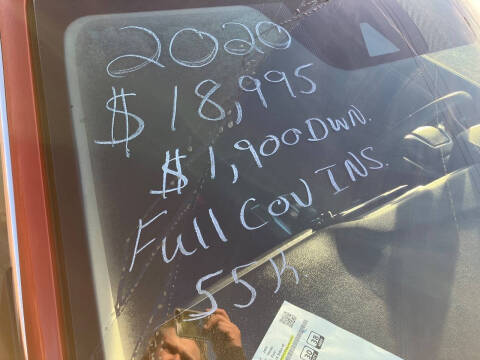 2020
$18,995
$1,900 DWN.
Full COV INS.
55K